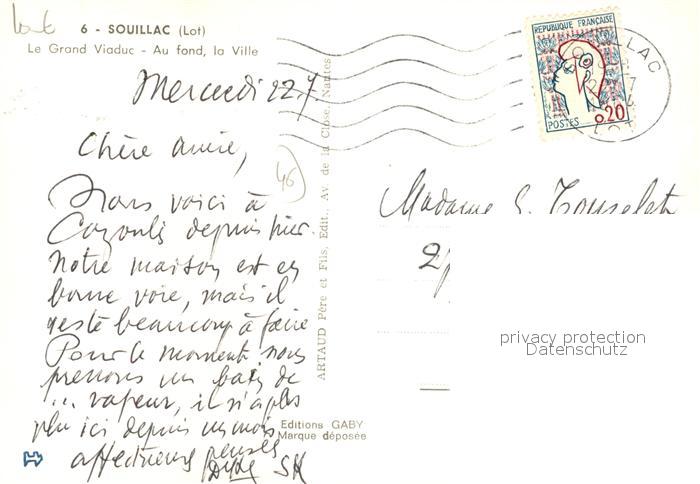 Lot
6 - SOUILLAC (Lot)
Le Grand Viaduc - Au fond, la Ville
Mercredi 22.7
Chère amie,
46
Nous voici à
Cazoulès depuis hier.
Notre maison est en
bonne voie, mais il
reste beaucoup à faire
Pour le moment nous
prenons un bain de
... vapeur, il n'a plus
plu ici depuis un mois
affectueuses pensées
ARTAUD Père et Fils, Edit., Av. de la Close, Nantes
Editions GABY
Marque déposée
REPUBLIQUE FRANÇAISE
0,20
POSTES
LAC
LOT
Madame
2
privacy protection
Datenschutz